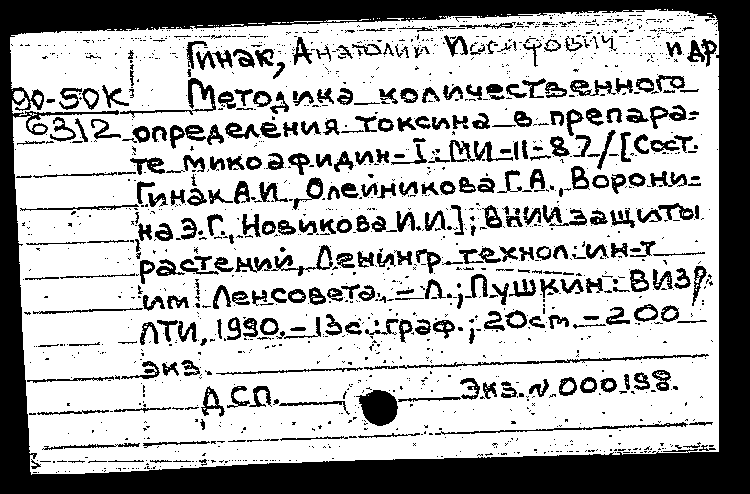 Гинак, Анатолий Иосифович и др.
90-50К Методика количественного
6312 определения токсина в препара-
те микоафидин-I: МИ-11-87/[Сост.
Гинак А.И., Олейникова Г.А., Ворони-
на Э.Г., Новикова И.И.]; ВНИИ защиты
растений, Ленингр. технол. ин-т
им. Ленсовета. – Л.; Пушкин: ВИЗР:
ЛТИ, 1990. – 13с.: граф.; 20см. – 200
экз.
ДСП. Экз. № 000198.